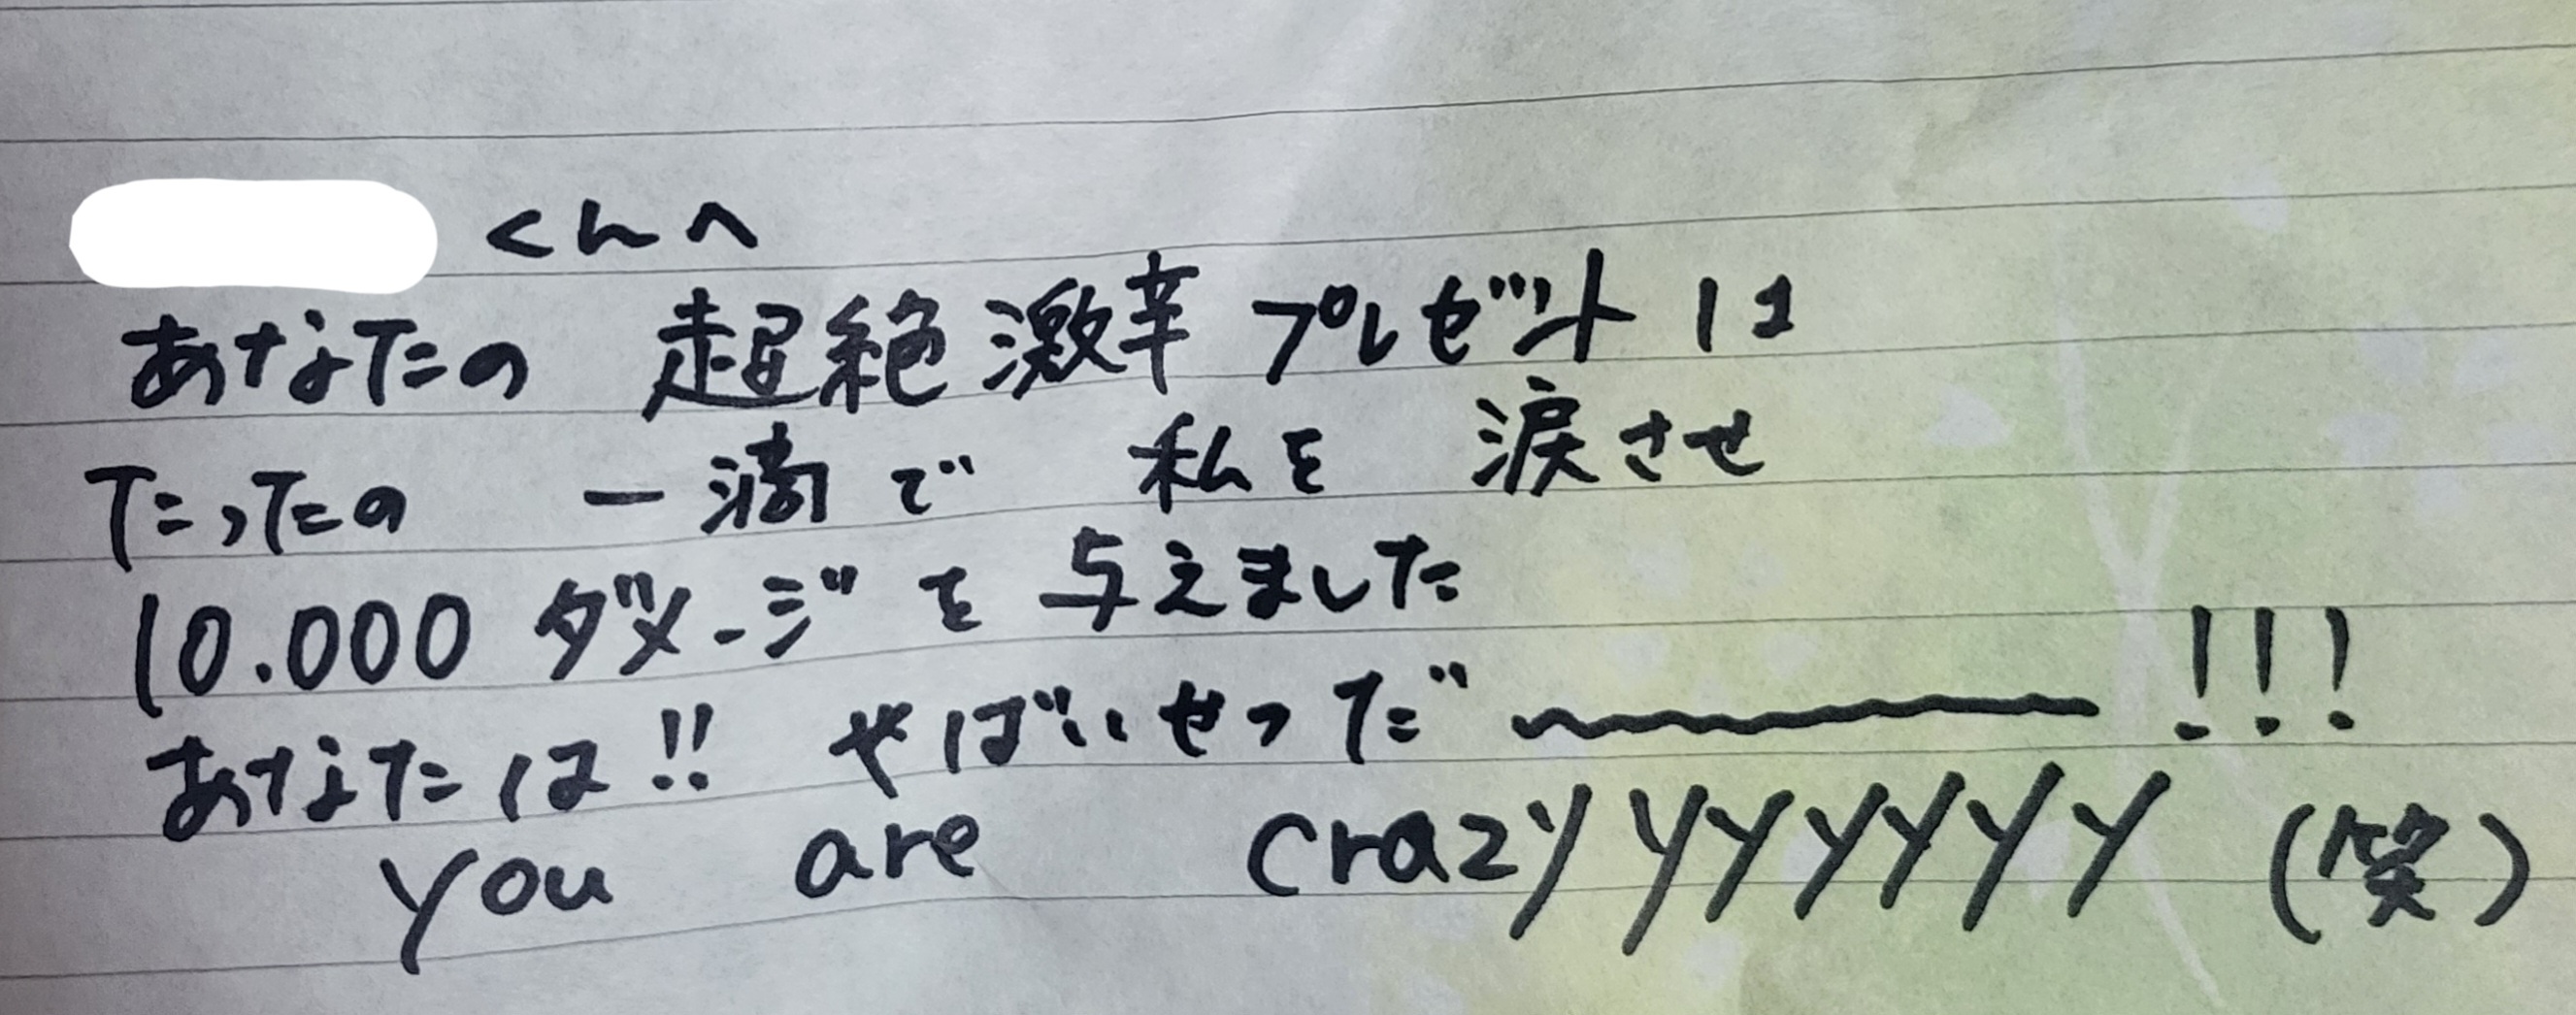 くんへ
あなたの 超絶激辛 プレゼントは
たったの 一滴で 私を 涙させ
10.000 ダメージを 与えました
あなたは!! やばいやつだ〜!!!
you are crazyyyyyyy (笑)